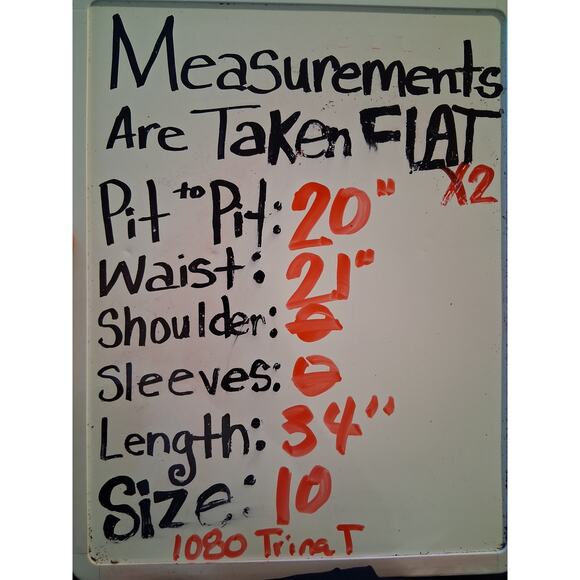 Measurements
Are Taken FLAT
X2
Pit to Pit: 20"
Waist: 21"
Shoulder: 0
Sleeves: 0
Length: 34"
Size: 10
1080 Trina T